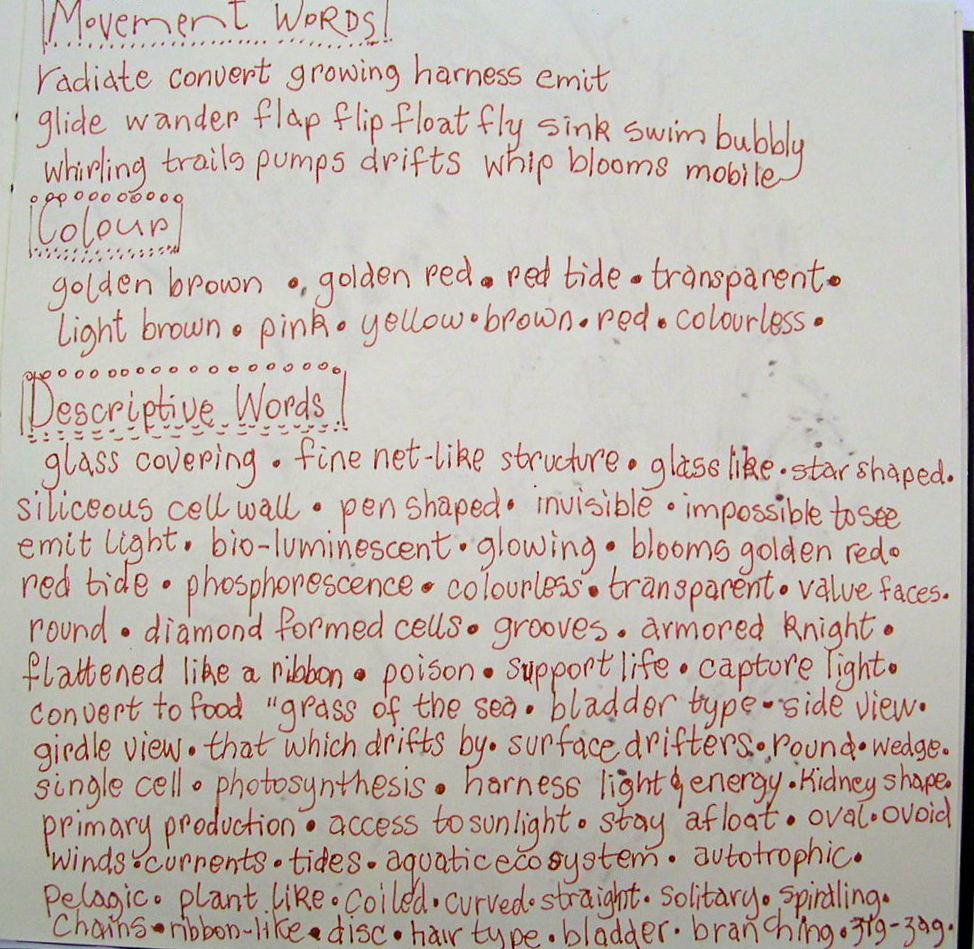 Movement Words
radiate convert growing harness emit
glide wander flap flip float fly sink swim bubbly
whirling trails pumps drifts whip blooms mobile
Colour
golden brown • golden red • red tide • transparent •
light brown • pink • yellow • brown • red • colourless •
Descriptive Words
glass covering • fine net-like structure • glass like • star shaped.
siliceous cell wall • pen shaped • invisible • impossible to see
emit light • bio-luminescent • glowing • blooms golden red •
red tide • phosphorescence • colourless • transparent • value faces.
round • diamond formed cells • grooves • armored knight •
flattened like a ribbon • poison • support life • capture light •
convert to food "grass of the sea • bladder type - side view •
girdle view • that which drifts by • surface drifters • round • wedge.
single cell • photosynthesis • harness light & energy • kidney shape •
primary production • access to sunlight • stay afloat • oval • ovoid
winds • currents • tides • aquatic ecosystem • autotrophic •
Pelagic • plant like • coiled • curved • straight • solitary • spiralling •
Chains • ribbon-like • disc • hair type • bladder • branching •